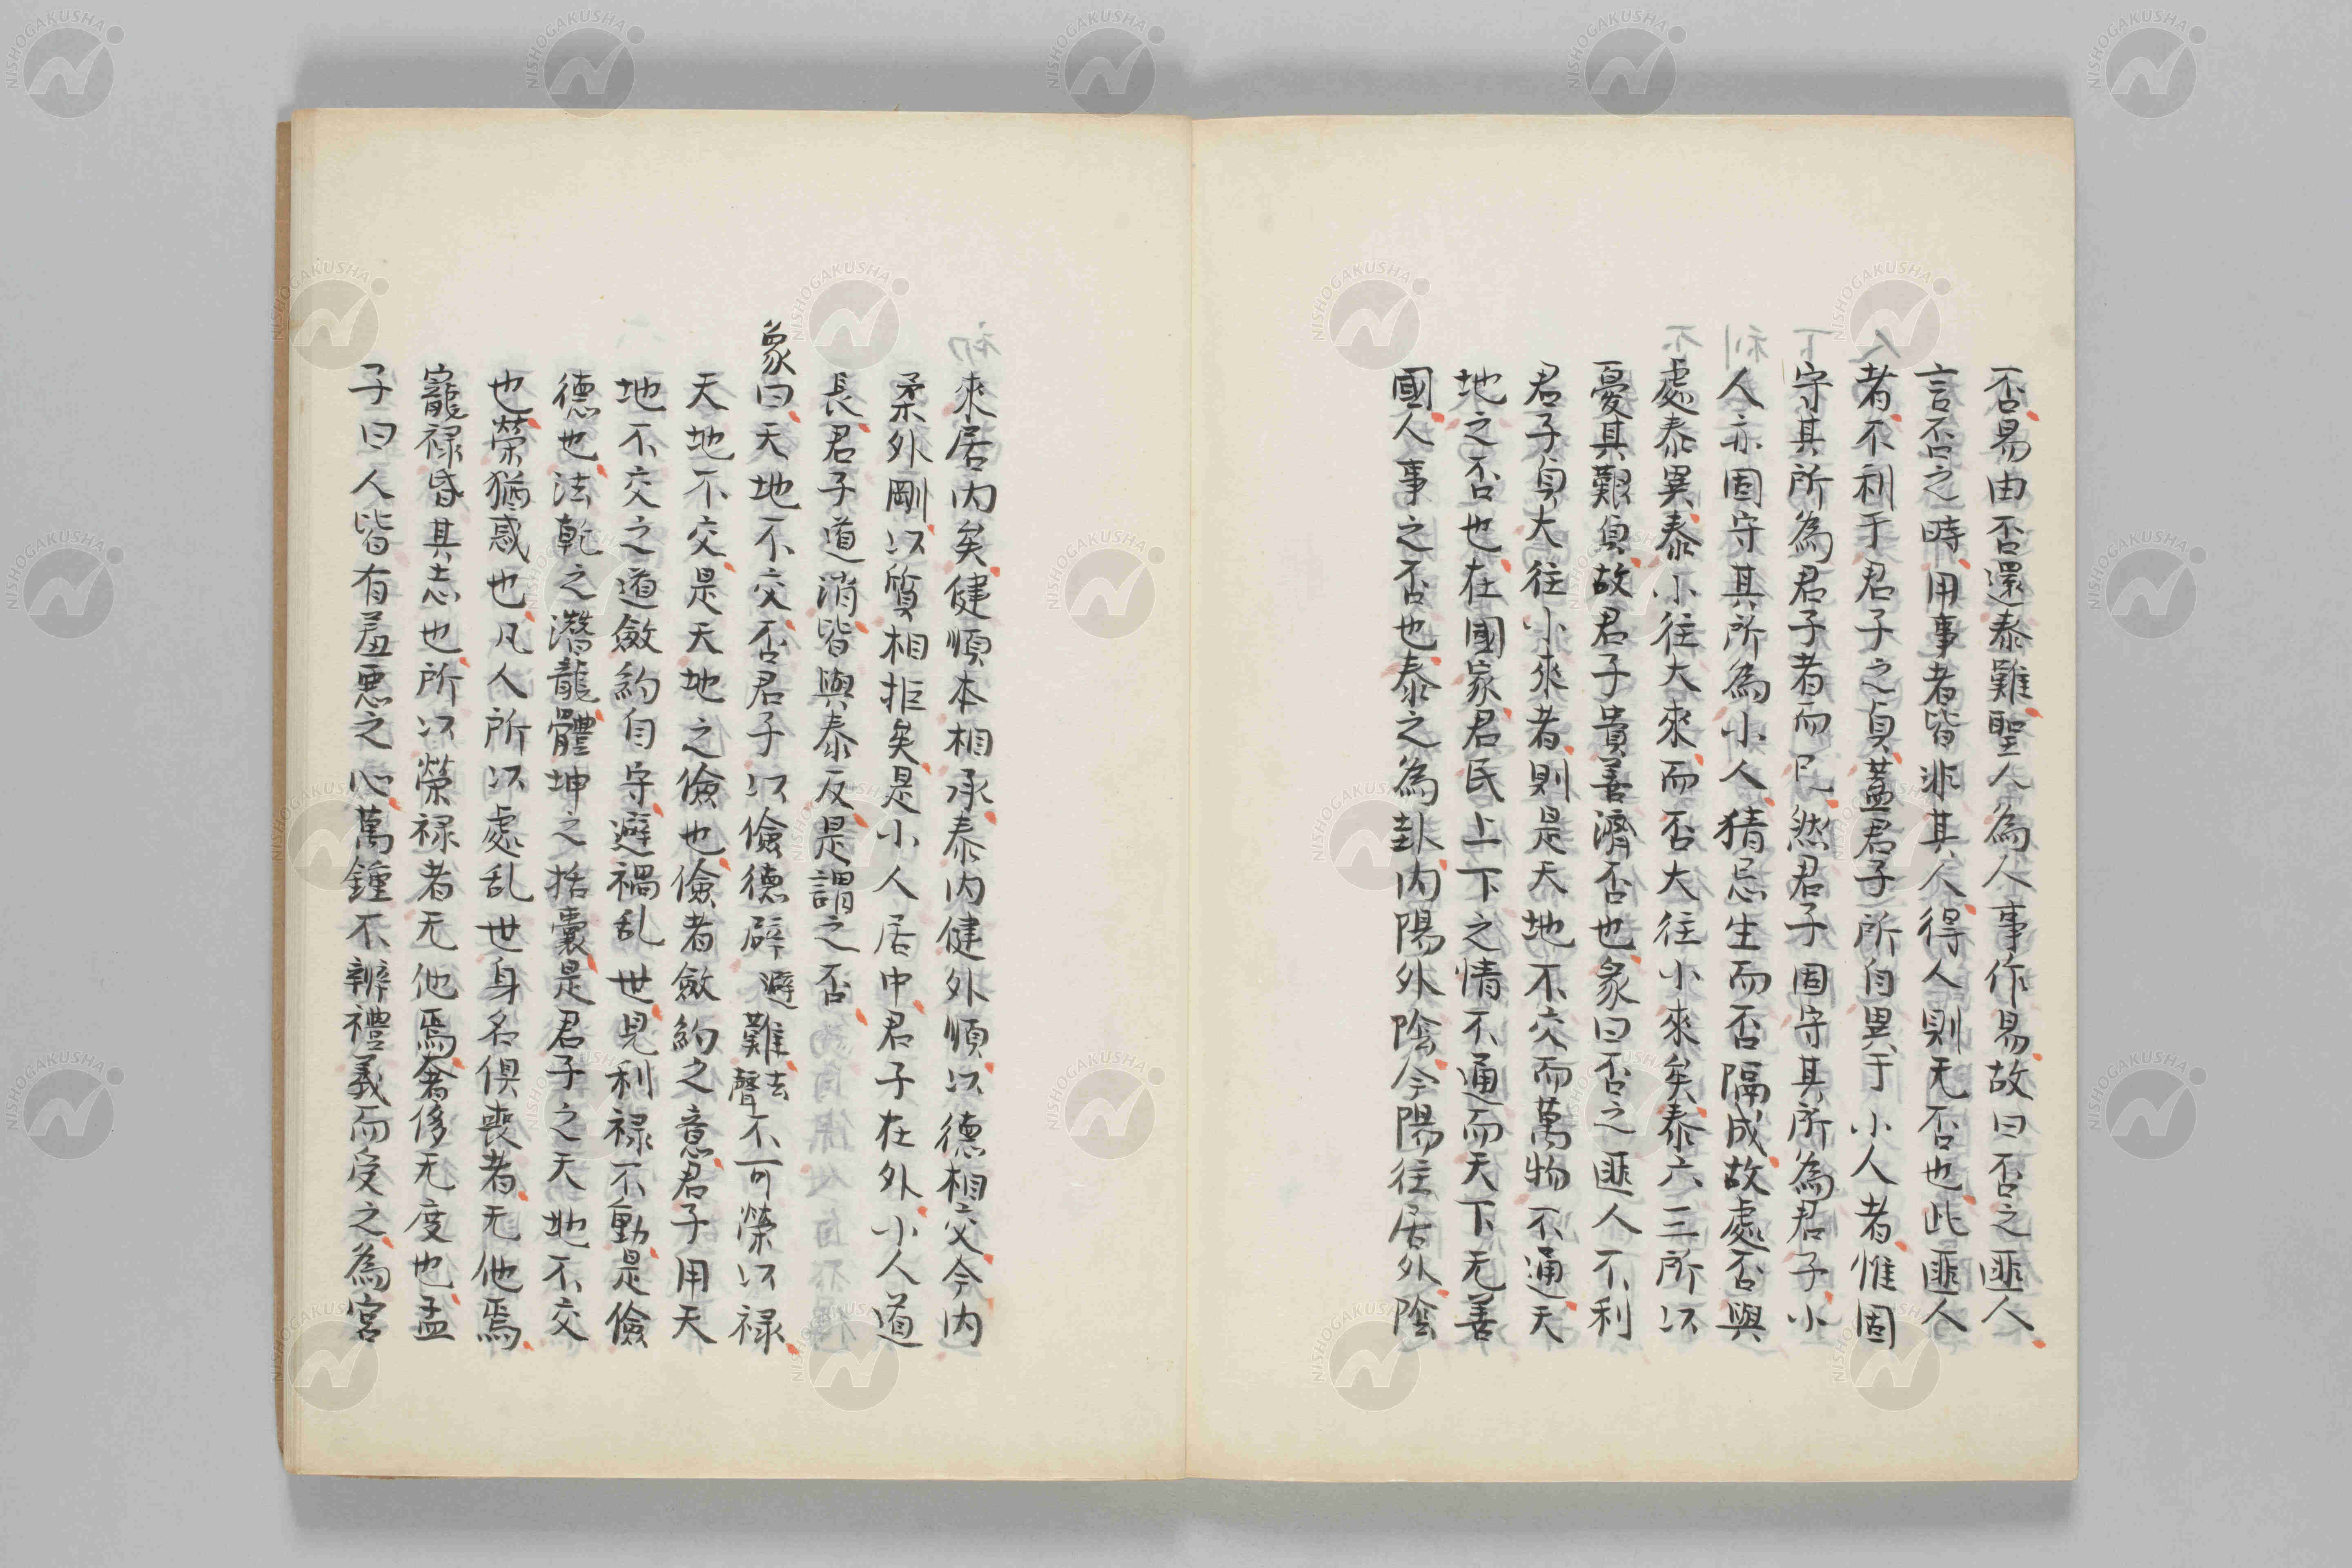 否易由否還泰難聖人為人事作易故曰否之匪人
言否之時用事者皆非其人得人則无否也此匪人
者不利于君子之貞蓋君子所自異于小人者惟固
守其所為君子者而已然君子固守其所為君子小
人亦固守其所為小人猜忌生而否隔成故處否與
處泰異泰小往大來而否大往小來矣泰六三所以
憂其艱貞故君子貴善濟否也彖曰否之匪人不利
君子貞大往小來者則是天地不交而萬物不通天
地之否也在國家君民上下之情不通而天下无善
國人事之否也泰之為卦内陽外陰今陽往居外陰
來居内矣健順本相承泰内健外順以德相交今内
柔外剛以質相拒矣是小人居中君子在外小人道
長君子道消皆與泰反是謂之否
象曰天地不交否君子以儉德辟避難去聲不可榮以禄
天地不交是天地之儉也儉者斂約之意君子用天
地不交之道斂約自守避禍乱世見利禄不動是儉
德也法乾之潛龍體坤之括囊是君子之天地不交
也榮猶惑也凡人所以處乱世身名俱喪者无他焉
寵禄昏其志也所以榮禄者无他焉奢侈无度也孟
子曰人皆有羞惡之心萬鍾不辨禮義而受之為宮
NISHOGAKUSHA